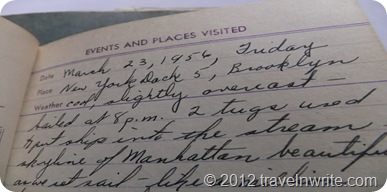 EVENTS AND PLACES VISITED
Date March 23, 1956, Friday
Place New York Dock 5, Brooklyn
Weather cool, slightly overcast -
sailed at 8 p.m. 2 tugs used
to put ship into the stream
skyline of Manhattan beautiful
as we set sail - like a
© 2012 travelnwrite.com